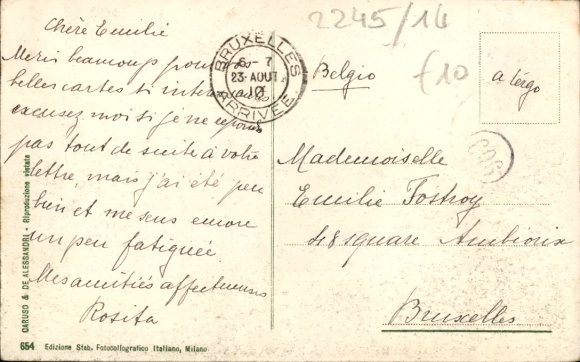 2245/14
Chère Emilie
Merci beaucoup pour vos
belles cartes si interessantes
excusez moi si je ne reponds
pas tout de suite à votre
lettre, mais j'ai été peu
bien et me sens encore
un peu fatiguée.
Mes amitiés affectueuses
Rosita
BRUXELLES
6-7
23 AOUT
10
ARRIVÉE
Belgio
f10
a tergo
Mademoiselle
Emilie Fostroy
48 square Ambiorix
Bruxelles
CARUSO & DE ALESSANDRI - Riproduzione vietata
654 Edizione Stab. Fotocollografico Italiano, Milano